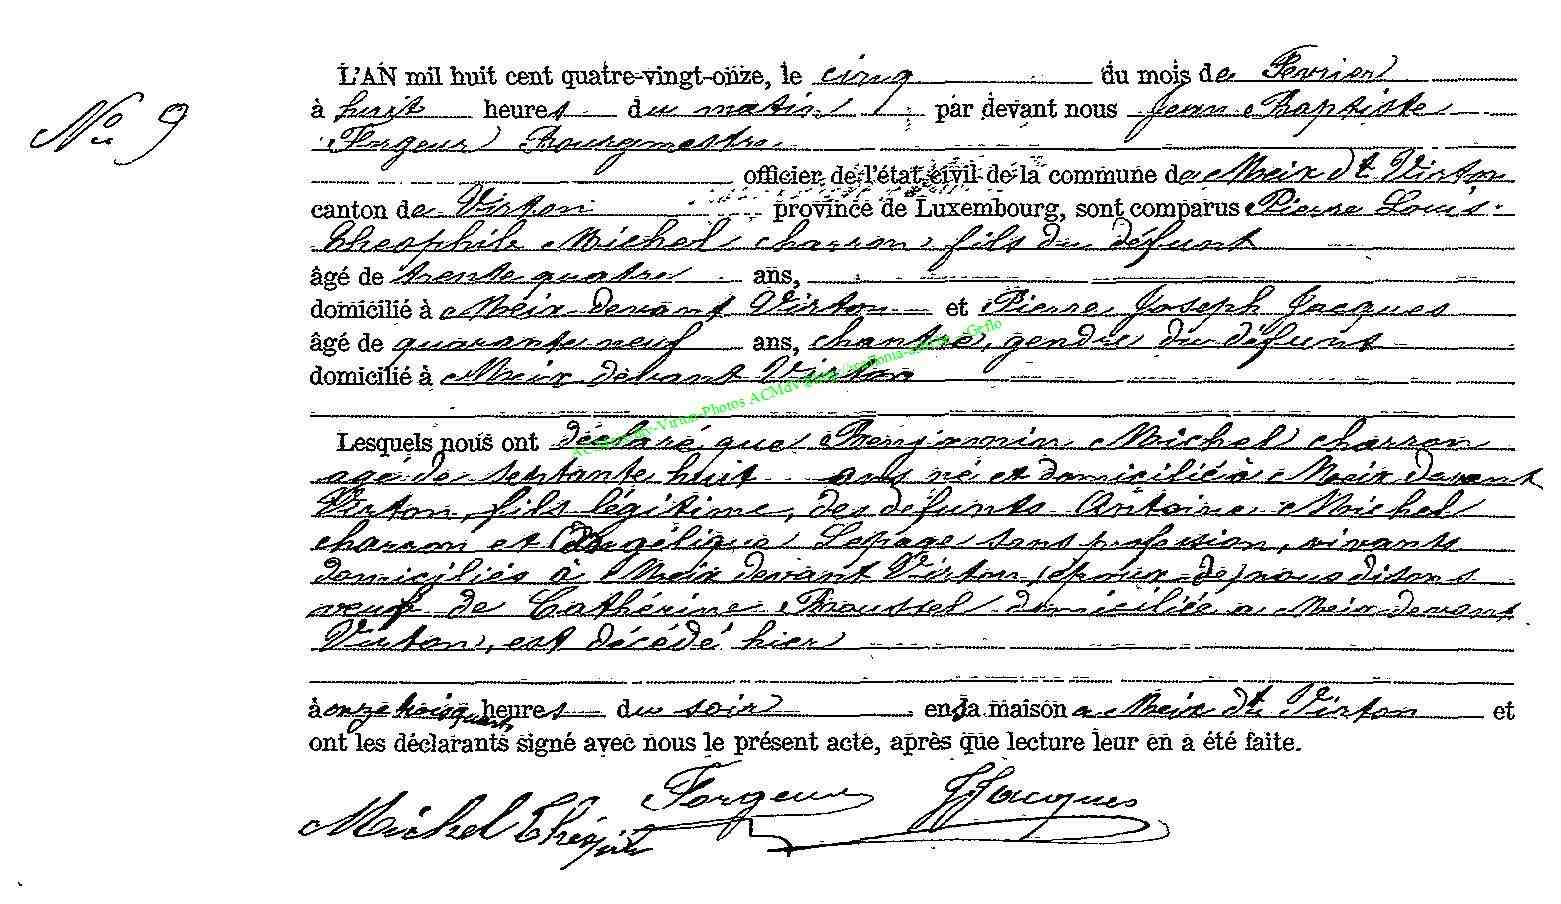 No 9
L'AN mil huit cent quatre-vingt-onze, le cinq du mois de Fevrier
à huit heures du matin par devant nous Jean Baptiste
Forgeur Bourgmestre
officier de l'état civil de la commune de Meix dt Virton
canton de Virton province de Luxembourg, sont comparus Pierre Louis
Théophile Michel charron, fils du défunt
âgé de trente quatre ans,
domicilié à Meix devant Virton et Pierre Joseph Jacques
âgé de quarante neuf ans, chantre, gendre du défunt
domicilié à Meix devant Virton
Lesquels nous ont déclaré que Benjamin Michel charron
agé de septante huit ans né et domicilié à Meix devant
Virton, fils légitime, des défunts Antoine Michel
charron et Angélique Lepage sans profession, vivants
domiciliés à Meix devant Virton, (époux de) nous disons
veuf de Cathérine Roussel domiciliée a Meix devant
Virton, est décédé hier
à onze trois quarts heures du soir en sa maison a Meix dt Virton et
ont les déclarants signé avec nous le présent acte, après que lecture leur en a été faite.
Michel Théophile Forgeur JJacques